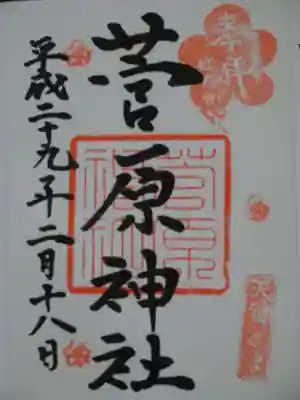 奉拝
菅原神社
平成二十九年二月十八日
菅原神社
天神さま